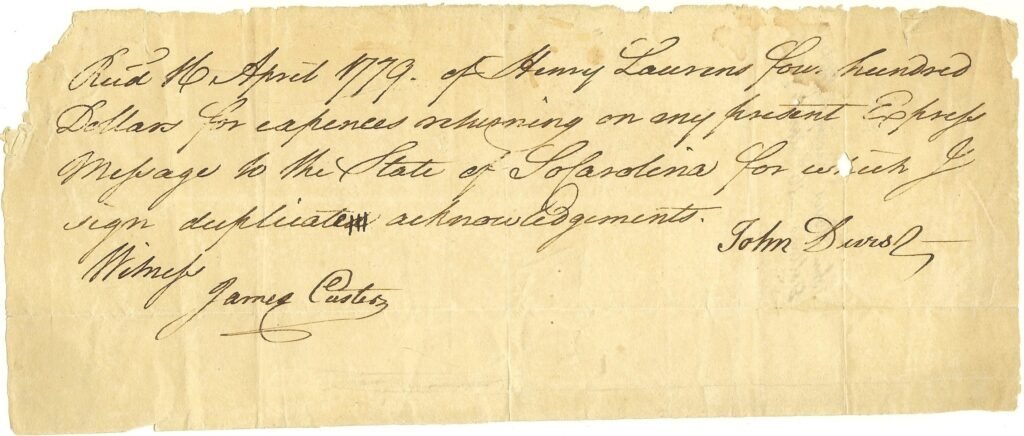 Rec'd 16 April 1779. of Henry Laurens four hundred
Dollars for expences returning on my present Express
Message to the State of SoCarolina for which I
sign duplicate acknowledgements.
John
Witness
James Custer